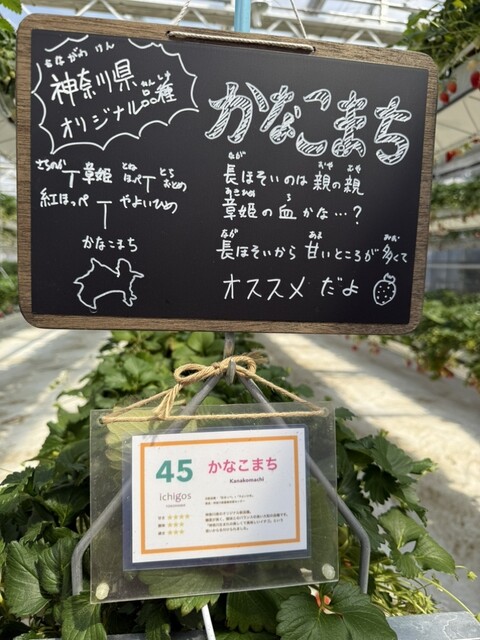 かながわけん
神奈川県
オリジナル品種
ひんしゅ
かなこまち
さちのか
章姫
とねほっぺ
とちおとめ
紅ほっぺ
やよいひめ
かなこまち
なが
おや
おや
長ほそいのは 親の親
あきひめ
ち
章姫の血かな…?
なが
あま
おお
長ほそいから 甘いところが多くて
オススメ だよ
45
かなこまち
Kanakomachi
ichigos